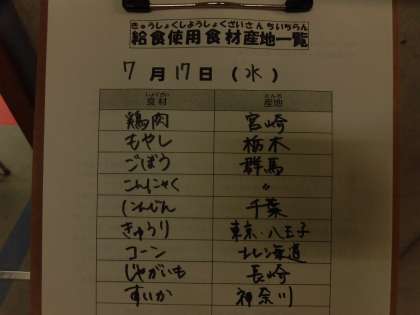 きゅうしょくしようしょくざいさんちいちらん
給食使用食材産地一覧
7月17日(水)
しょくざい さんち
食材 産地
鶏肉 宮崎
もやし 栃木
ごぼう 群馬
こんにゃく 〃
にんじん 千葉
きゅうり 東京・八王子
コーン 北海道
じゃがいも 長崎
すいか 神奈川